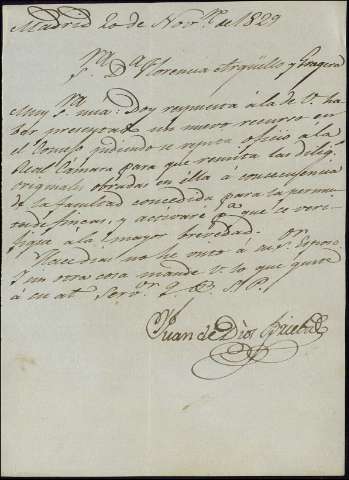 Madrid 20 de Nov.re de 1829
S.ra D.a Florencia Argüelles y Fragera
Muy S.ra mia: Doy respuesta á la de V. ha
ber presentado un nuevo recurso en
el Consejo pidiendo se repita oficio á la
Real Cámara para que remita las dilig.s
originales obradas en ella á consecuencia
de la facultad concedida para la permu
ta de fincas, y activaré p.a que se veri
fique á la mayor brevedad.
Hace dias no he visto á su S.or Esposo,
y en otra cosa mande V. lo que guste
á su at.o Serv.or Q. B. S. P.
Juan de Dios